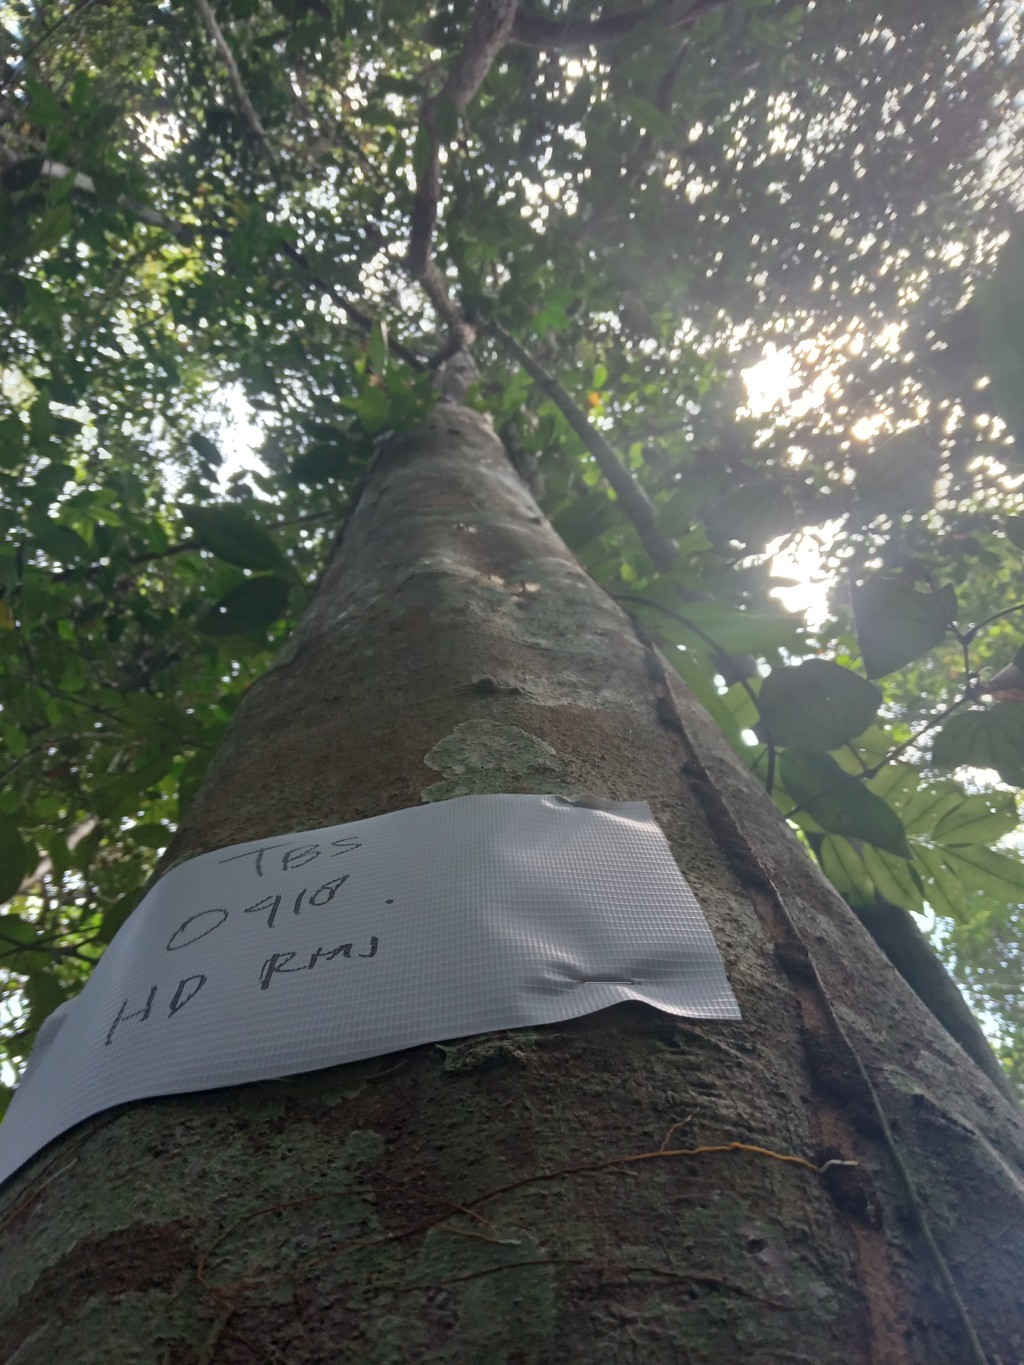 TBS
0918.
HD RMJ